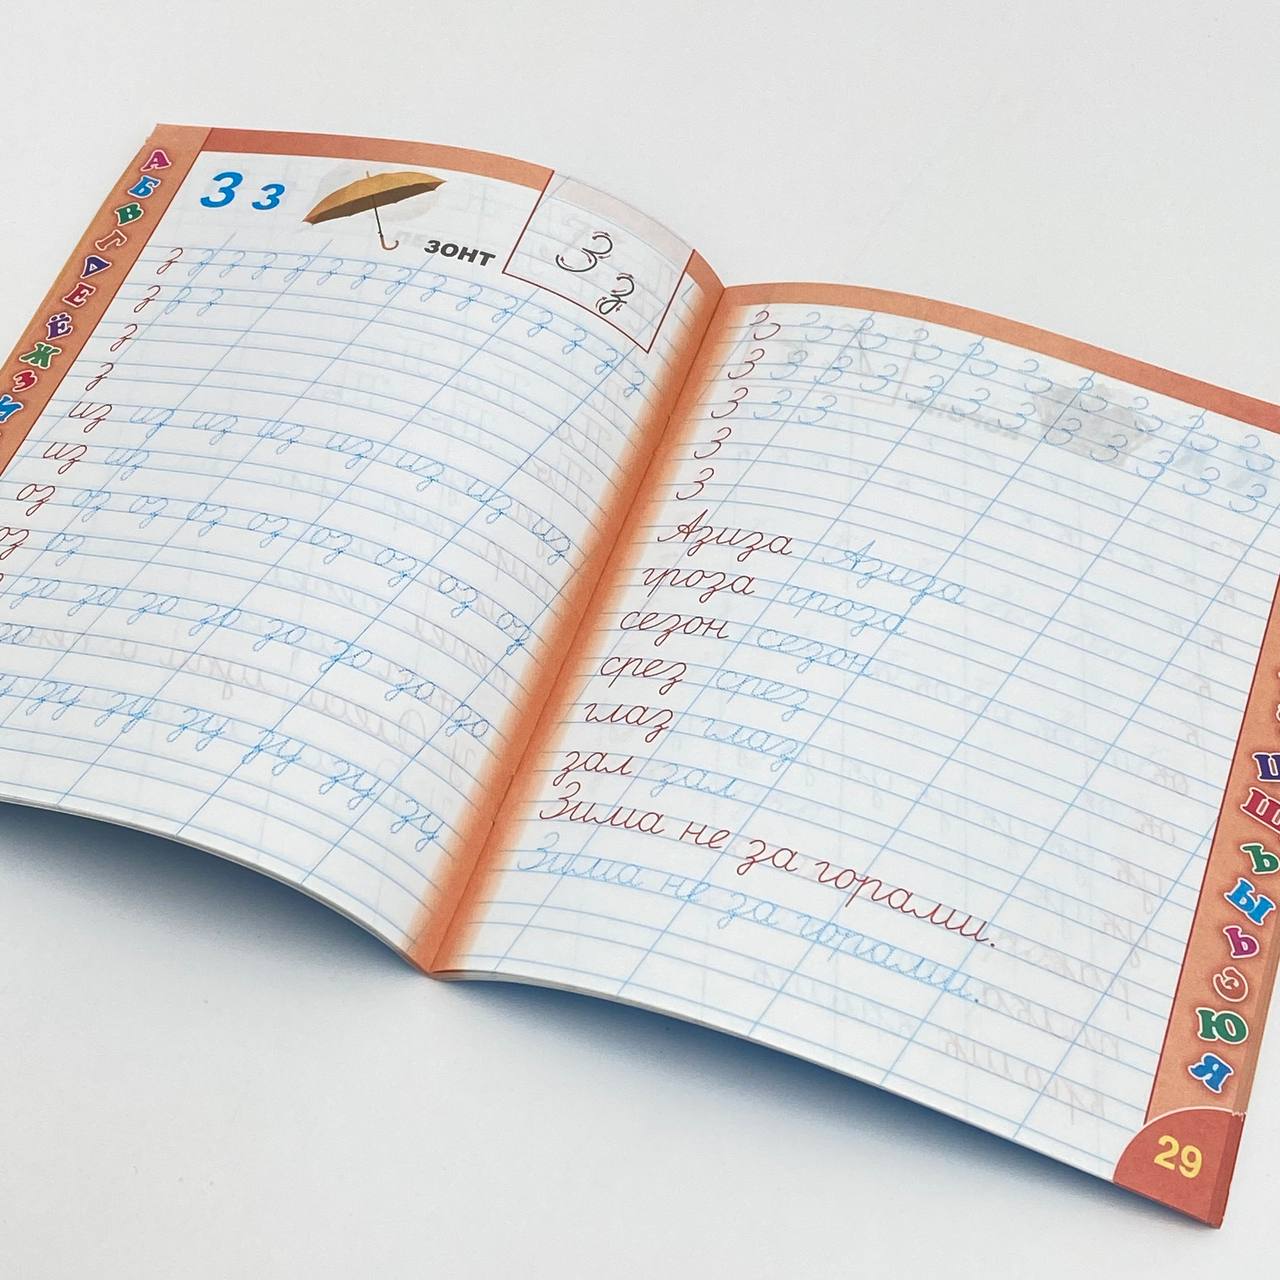 З з
зонт
З з
з з з з з з з з з з з з з
з з з
з
з
из из из из из из из из
из из
оз оз оз оз оз оз оз оз оз
оз оз
зо зо зо зо зо зо зо зо
зу зу зу зу зу зу зу
З З З З З З З З З З
З З З З З З З З З З
З З З
З
З
Азиза Азиза
гроза гроза
сезон сезон
срез срез
глаз глаз
зал зал
Зима не за горами.
Зима не за горами.
А Б В Г Д Е Ё Ж З И
Ш Щ Ъ Ы Ь Э Ю Я
29